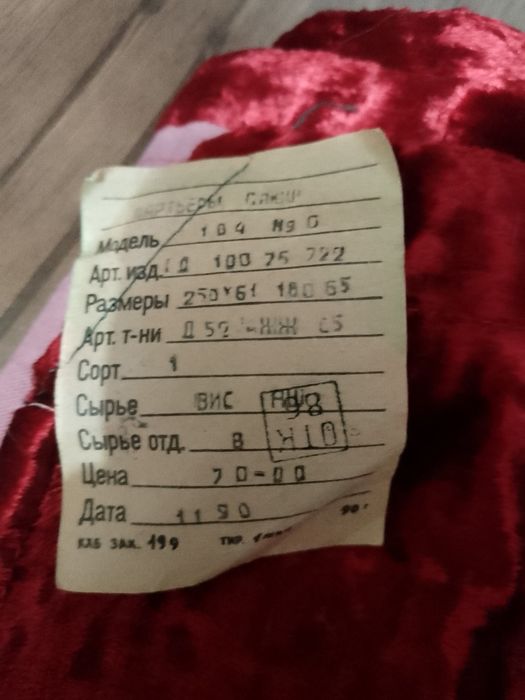 ПОРТЬЕРЫ
Модель 104 №0
Арт. изд. 100 75 722
Размеры 250*61 180 65
Арт. т-ни Д 52 65
Сорт 1
Сырье ВИС
Сырье отд. В
Цена 70-00
Дата 11 90
КХБ ЗАК. 199 ТИР. 90г
98
ОТК